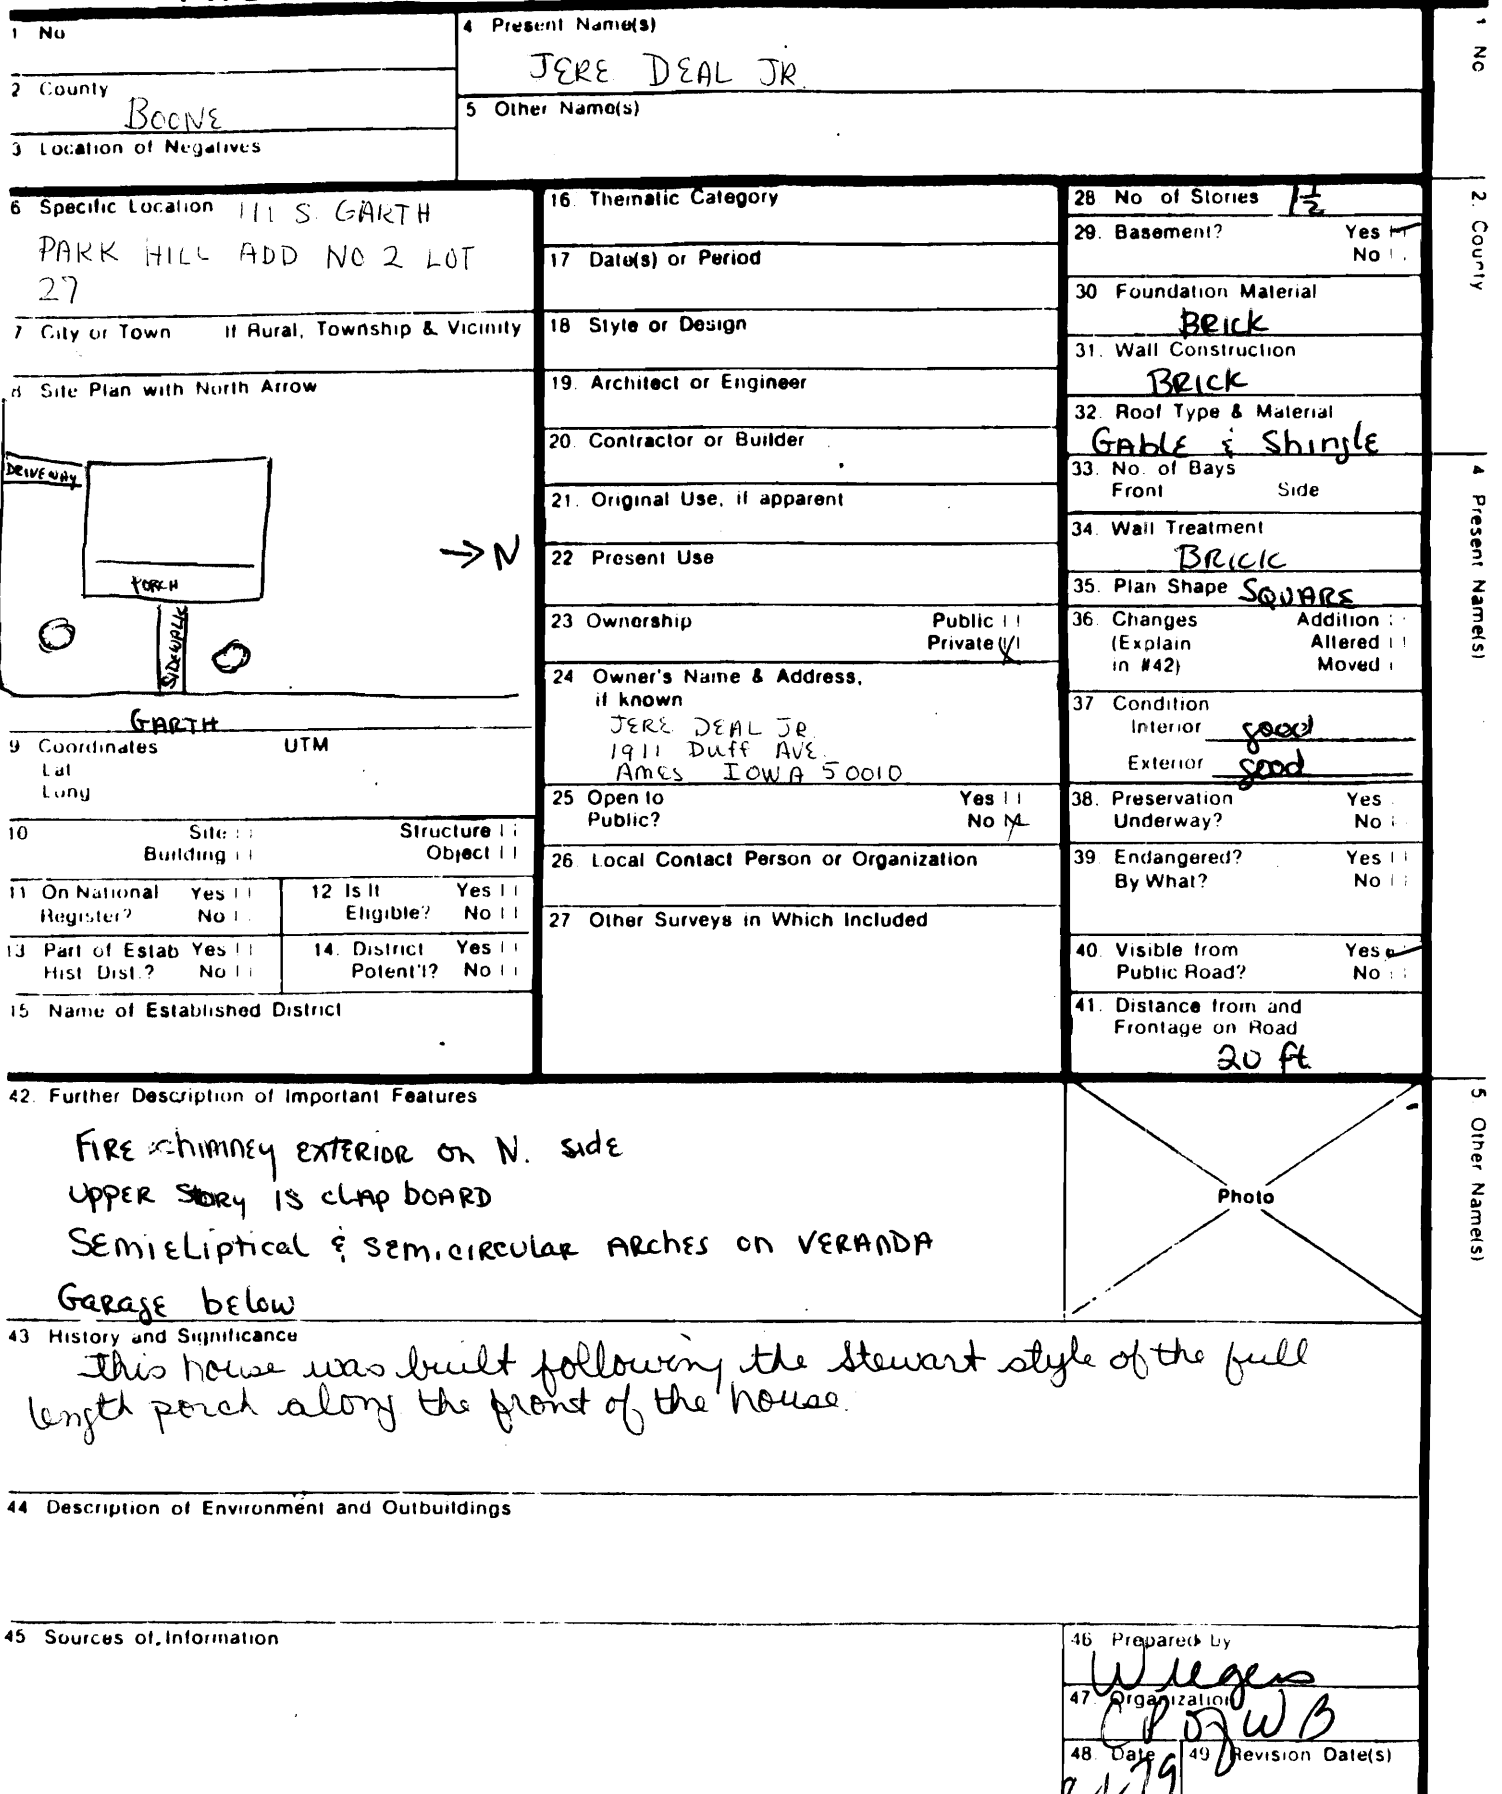 1 No
4 Present Name(s)
JERE DEAL JR.
2 County
BOONE
5 Other Name(s)
3 Location of Negatives
6 Specific Location 111 S. GARTH
PARK HILL ADD NO 2 LOT
27
7 City or Town If Rural, Township & Vicinity
8 Site Plan with North Arrow
DRIVEWAY
PORCH
SIDEWALK
→ N
GARTH
9 Coordinates UTM
Lat
Long
10 Site Structure
Building Object
11 On National Register? Yes No
12 Is It Eligible? Yes No
13 Part of Estab Hist Dist.? Yes No
14. District Potent'l? Yes No
15 Name of Established District
16. Thematic Category
17 Date(s) or Period
18 Style or Design
19. Architect or Engineer
20. Contractor or Builder
21. Original Use, if apparent
22 Present Use
23 Ownership Public
Private
24 Owner's Name & Address,
if known
JERE DEAL JR.
1911 Duff AVE.
AMES IOWA 50010
25 Open to Yes
Public? No
26. Local Contact Person or Organization
27 Other Surveys in Which Included
28 No of Stories 1 1/2
29. Basement? Yes
No
30 Foundation Material
BRICK
31. Wall Construction
BRICK
32. Roof Type & Material
GABLE & Shingle
33. No. of Bays
Front Side
34. Wall Treatment
BRICK
35. Plan Shape SQUARE
36. Changes Addition
(Explain Altered
in #42) Moved
37 Condition
Interior good
Exterior good
38. Preservation Yes
Underway? No
39. Endangered? Yes
By What? No
40. Visible from Yes
Public Road? No
41. Distance from and
Frontage on Road
20 ft.
42. Further Description of Important Features
FIRE chimney EXTERIOR on N. side
UPPER STORY IS CLAP BOARD
SEMIELIPTICAL & SEMICIRCULAR ARCHES on VERANDA
GARAGE below
Photo
43 History and Significance
This house was built following the Stewart style of the full
length porch along the front of the house.
44 Description of Environment and Outbuildings
45 Sources of Information
46 Prepared by
47. Organization
48. Date 49 Revision Date(s)
1 No
2. County
4 Present Name(s)
5 Other Name(s)